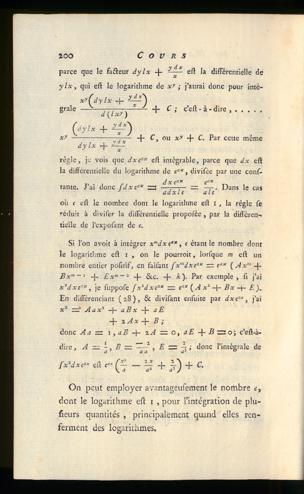 200 COURS
parce que le facteur dylx + ydx/x est la différentielle de
ylx, qui est le logarithme de x^y ; j'aurai donc pour inté-
grale x^y(dylx + ydx/x)/d(lx^y) + C ; c'est-à-dire, . . . . . .
x^y (dylx + ydx/x)/(dylx + ydx/x) + C, ou x^y + C. Par cette même
règle, je vois que dxe^ax est intégrable, parce que dx est
la différentielle du logarithme de e^ax, divisée par une cons-
tante. J'ai donc ∫dxe^ax = dxe^ax/adxle = e^ax/ale. Dans le cas
où e est le nombre dont le logarithme est 1, la règle se
réduit à diviser la différentielle proposée, par la différen-
tielle de l'exposant de e.
Si l'on avoit à intégrer x^m dxe^ax, e étant le nombre dont
le logarithme est 1, on le pourroit, lorsque m est un
nombre entier positif, en faisant ∫x^m dxe^ax = e^ax (Ax^m +
Bx^m-1 + Ex^m-2 + &c. + k). Par exemple, si j'ai
x²dxe^ax, je suppose ∫x²dxe^ax = e^ax (Ax² + Bx + E).
En différenciant (28), & divisant ensuite par dxe^ax, j'ai
x² = Aax² + aBx + aE
+ 2Ax + B ;
donc Aa = 1, aB + 2A = 0, aE + B = 0 ; c'est-à-
dire, A = 1/a, B = -2/aa, E = 2/a³ ; donc l'intégrale de
∫x²dxe^ax est e^ax (x²/a - 2x/a² + 2/a³) + C.
On peut employer avantageusement le nombre e,
dont le logarithme est 1, pour l'intégration de plu-
sieurs quantités, principalement quand elles ren-
ferment des logarithmes.